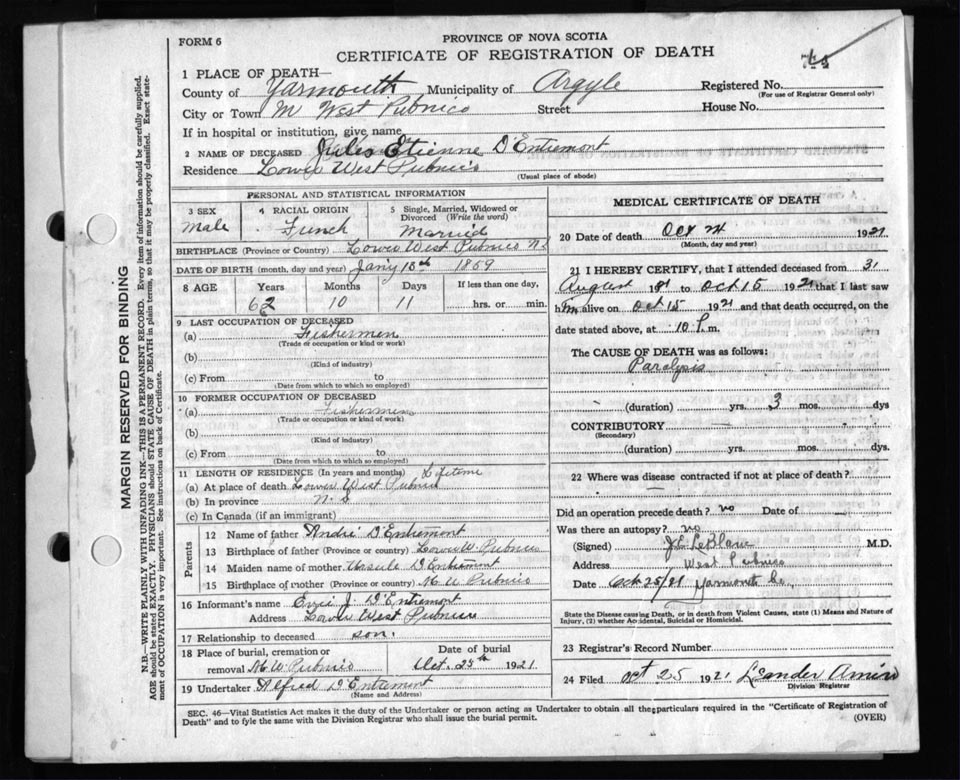 FORM 6
PROVINCE OF NOVA SCOTIA
CERTIFICATE OF REGISTRATION OF DEATH
1 PLACE OF DEATH—
County of Yarmouth Municipality of Argyle Registered No.
(For use of Registrar General only)
City or Town M West Pubnico Street House No.
If in hospital or institution, give name
2 NAME OF DECEASED Jules Etienne D'Entremont
Residence Lower West Pubnico
(Usual place of abode)
PERSONAL AND STATISTICAL INFORMATION
3 SEX
Male
4 RACIAL ORIGIN
French
5 Single, Married, Widowed or Divorced (Write the word)
Married
BIRTHPLACE (Province or Country) Lower West Pubnico N.S
DATE OF BIRTH (month, day and year) Jan'y 13th 1859
8 AGE Years Months Days If less than one day,
62 10 11 hrs. or min.
9 LAST OCCUPATION OF DECEASED
(a) Fishermen
(Trade or occupation or kind or work)
(b)
(Kind of industry)
(c) From to
(Date from which to which so employed)
10 FORMER OCCUPATION OF DECEASED
(a) Fishermen
(Trade or occupation or kind of work)
(b)
(Kind of industry)
(c) From to
(Date from which to which so employed)
11 LENGTH OF RESIDENCE (In years and months) Lifetime
(a) At place of death Lower West Pubnico
(b) In province N. S
(c) In Canada (if an immigrant)
Parents
12 Name of father André D'Entremont
13 Birthplace of father (Province or country) Lower W. Pubnico
14 Maiden name of mother Ursule D'Entremont
15 Birthplace of mother (Province or country) M. W Pubnico
16 Informant's name J. D'Entremont
Address Lower West Pubnico
17 Relationship to deceased son.
18 Place of burial, cremation or removal M. W. Pubnico
Date of burial
Oct. 25th 1921
19 Undertaker Alfred D'Entremont
(Name and Address)
MEDICAL CERTIFICATE OF DEATH
20 Date of death Oct 24 1921
(Month, day and year)
21 I HEREBY CERTIFY, that I attended deceased from 31
August 1921 to Oct 15 1921 that I last saw
him alive on Oct 15 1921 and that death occurred, on the
date stated above, at 10 P. m.
The CAUSE OF DEATH was as follows:
Paralysis
(duration) yrs. 3 mos. dys
CONTRIBUTORY
(Secondary)
(duration) yrs. mos. dys
22 Where was disease contracted if not at place of death?
Did an operation precede death? no Date of
Was there an autopsy? no
(Signed) LeBlanc M.D.
Address West Pubnico
Date Oct 25/21 Yarmouth Co.,
State the Disease causing Death, or in death from Violent Causes, state (1) Means and Nature of
Injury, (2) whether Accidental, Suicidal or Homicidal.
23 Registrar's Record Number
24 Filed Oct 25 1921 Leander Amiro
Division Registrar
SEC. 46—Vital Statistics Act makes it the duty of the Undertaker or person acting as Undertaker to obtain all the particulars required in the "Certificate of Registration of
Death" and to fyle the same with the Division Registrar who shall issue the burial permit.
(OVER)
MARGIN RESERVED FOR BINDING
N.B.—WRITE PLAINLY WITH UNFADING INK—THIS IS A PERMANENT RECORD. Every item of information should be carefully supplied.
AGE should be stated EXACTLY. PHYSICIANS should STATE CAUSE OF DEATH in plain terms, so that it may be properly classified. Exact state-
ment of OCCUPATION is very important. See instructions on back of Certificate.